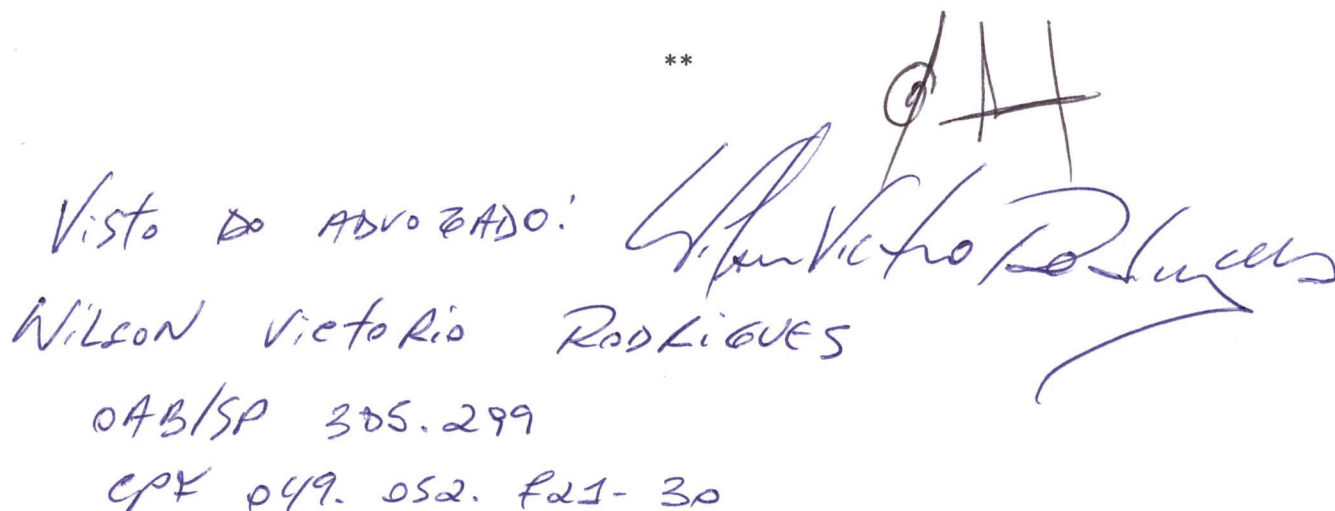 **
Visto do ADVOGADO: Wilson Victorio Rodrigues
WiLSON VictoRio RODRiGUES
OAB/SP 305.299
CPF 049.052.